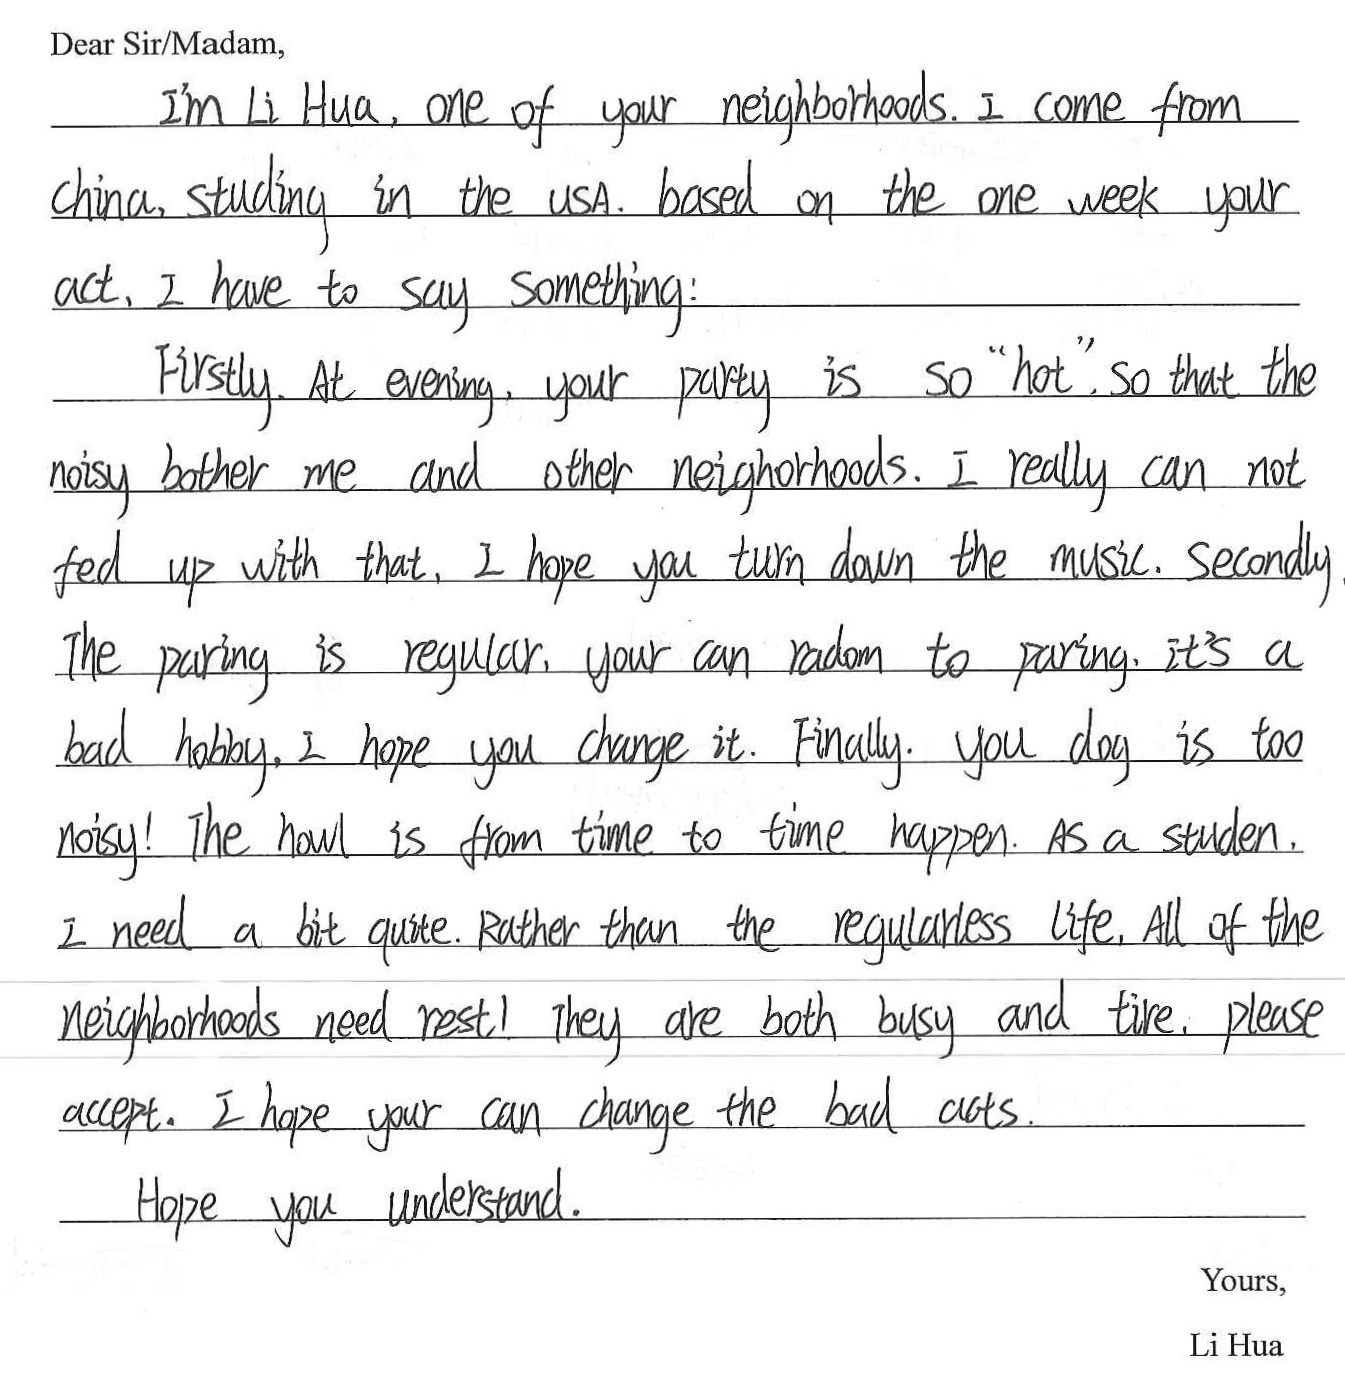 Dear Sir/Madam,
I'm Li Hua, one of your neighborhoods. I come from
China, studing in the USA. based on the one week your
act, I have to say something:
Firstly. At evening, your party is so "hot". so that the
noisy bother me and other neighorhoods. I really can not
fed up with that, I hope you turn down the music. Secondly,
The paring is regular, your can radom to paring. it's a
bad hobby, I hope you change it. Finally. you dog is too
noisy! The howl is from time to time happen. As a studen,
I need a bit quite. Rather than the regularless life, All of the
neighborhoods need rest! They are both busy and tire. please
accept. I hope your can change the bad acts.
Hope you understand.
Yours,
Li Hua